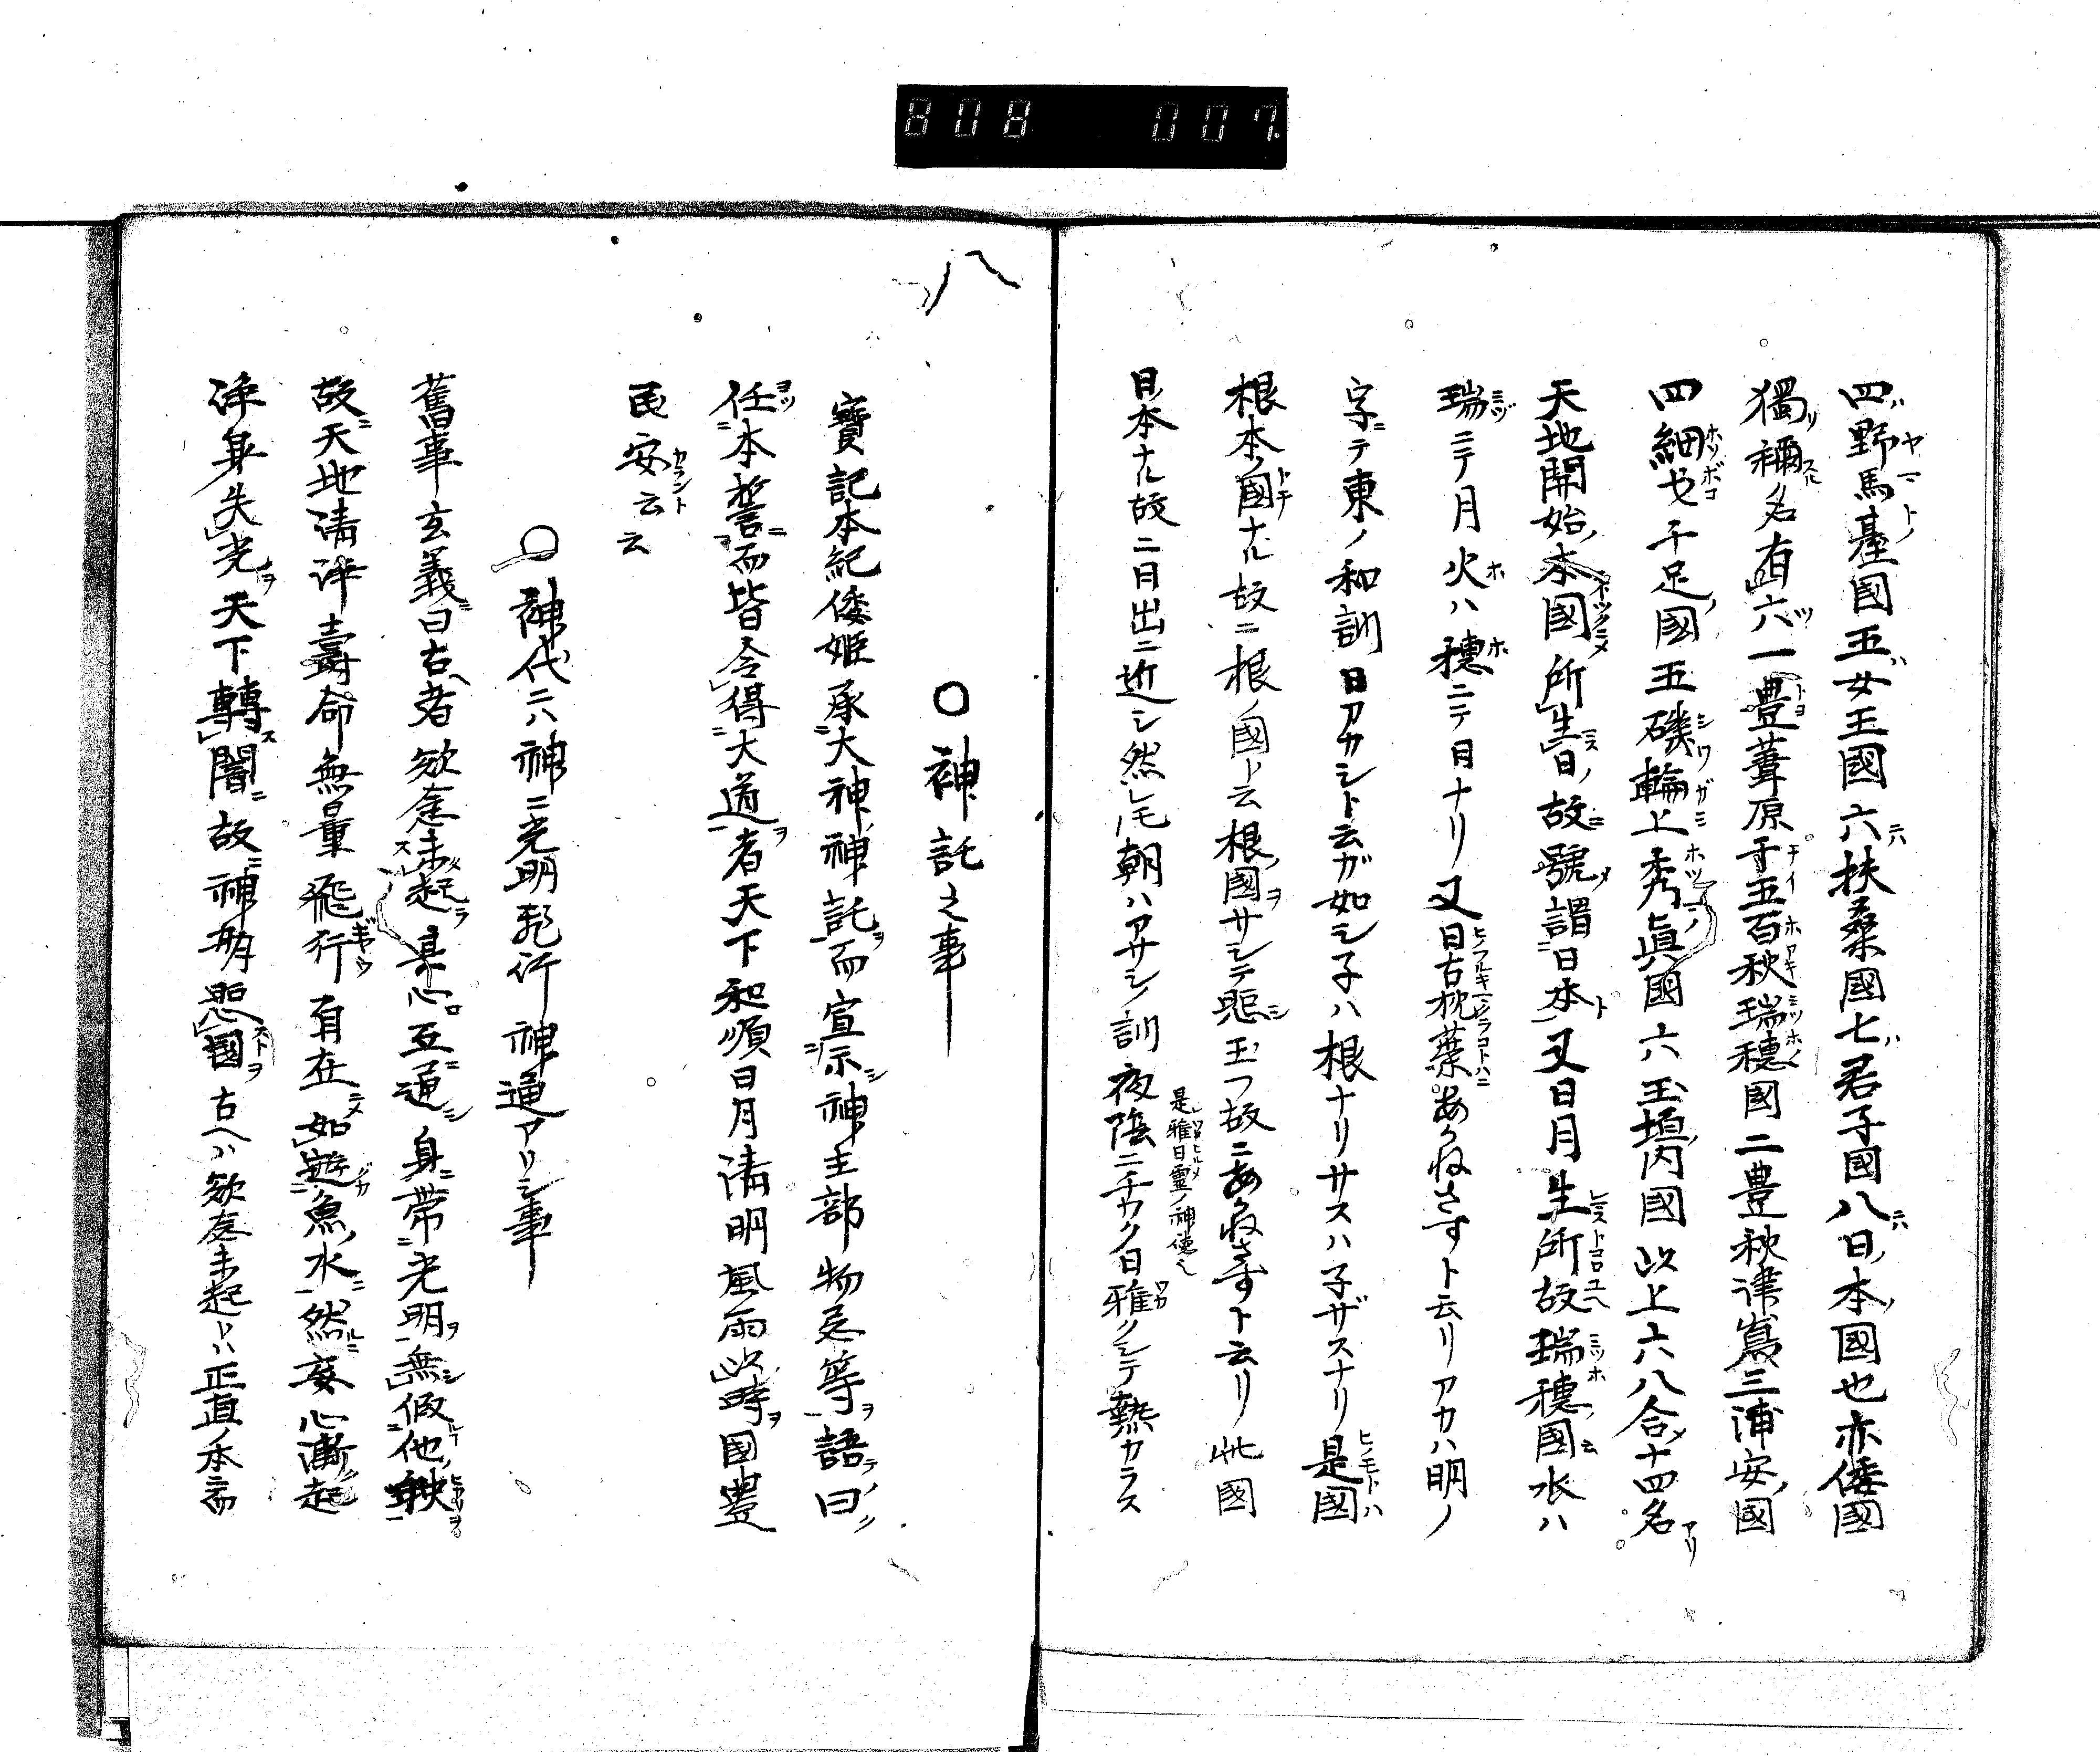 808 007.
四野馬臺國五女王國六扶桑國七君子國八日本國也亦倭國
獨稱名有六一豊葦原千五百秋瑞穂國二豊秋津嶌三浦安國
四細戈千足國五磯輪上秀眞國六玉墻内國以上六八合十四名
天地開始本國所生日故號謂日本又日月生所故瑞穂國水ハ
瑞ニテ月火ハ穂ニテ日ナリ又日古枕葉あかねさすト云リアカハ明ノ
字ニテ東ノ和訓日アカシト云ガ如シ子ハ根ナリサスハ子ザスナリ是國
根本國ナル故ニ根ノ國ト云根國サシテ照シ玉フ故ニあかねさすト云リ此國
是雅日霊ノ神徳也
日本ナル故ニ日出ニ近シ然レ𪜈朝ハアサシノ訓夜陰ニチカク日雅クシテ熱カラス
八
○神託之事
寶記本紀倭姫承大神神託而宣示神主部物忌等語曰
任本誓而皆令得大道者天下和順日月清明風雨以時國豊
民安云云
○神代ニハ神ニ光明飛行神通アリシ事
舊事玄義曰古者欲意未起其心互通身帯光明無假他
故天地清浄壽命無量飛行自在如遊魚水然妄心漸起
浄身失光天下轉闇故神明照國古ヘハ欲意未起トハ正直ノ本ニ而